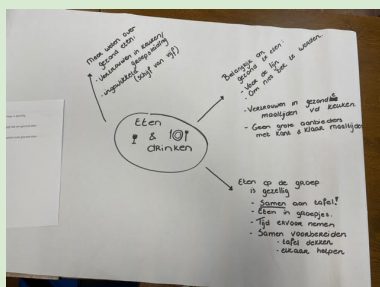 Meer weten over
gezond eten:
- Vertrouwen in keuken/
groepsleiding
- ingewikkeld (schijf van vijf)
Belangrijk om
gezond te eten:
- Voor de lijn
- Om niet ziek te worden.
- Vertrouwen in gezonde
maaltijden vd keuken.
- Geen grote aanbieders
met kant & klaar maaltijden
Eten
&
drinken
Eten op de groep
is gezellig
- Samen aan tafel!
- Eten in groepjes.
- Tijd ervoor nemen
- Samen voorbereiden
- tafel dekken
- elkaar helpen